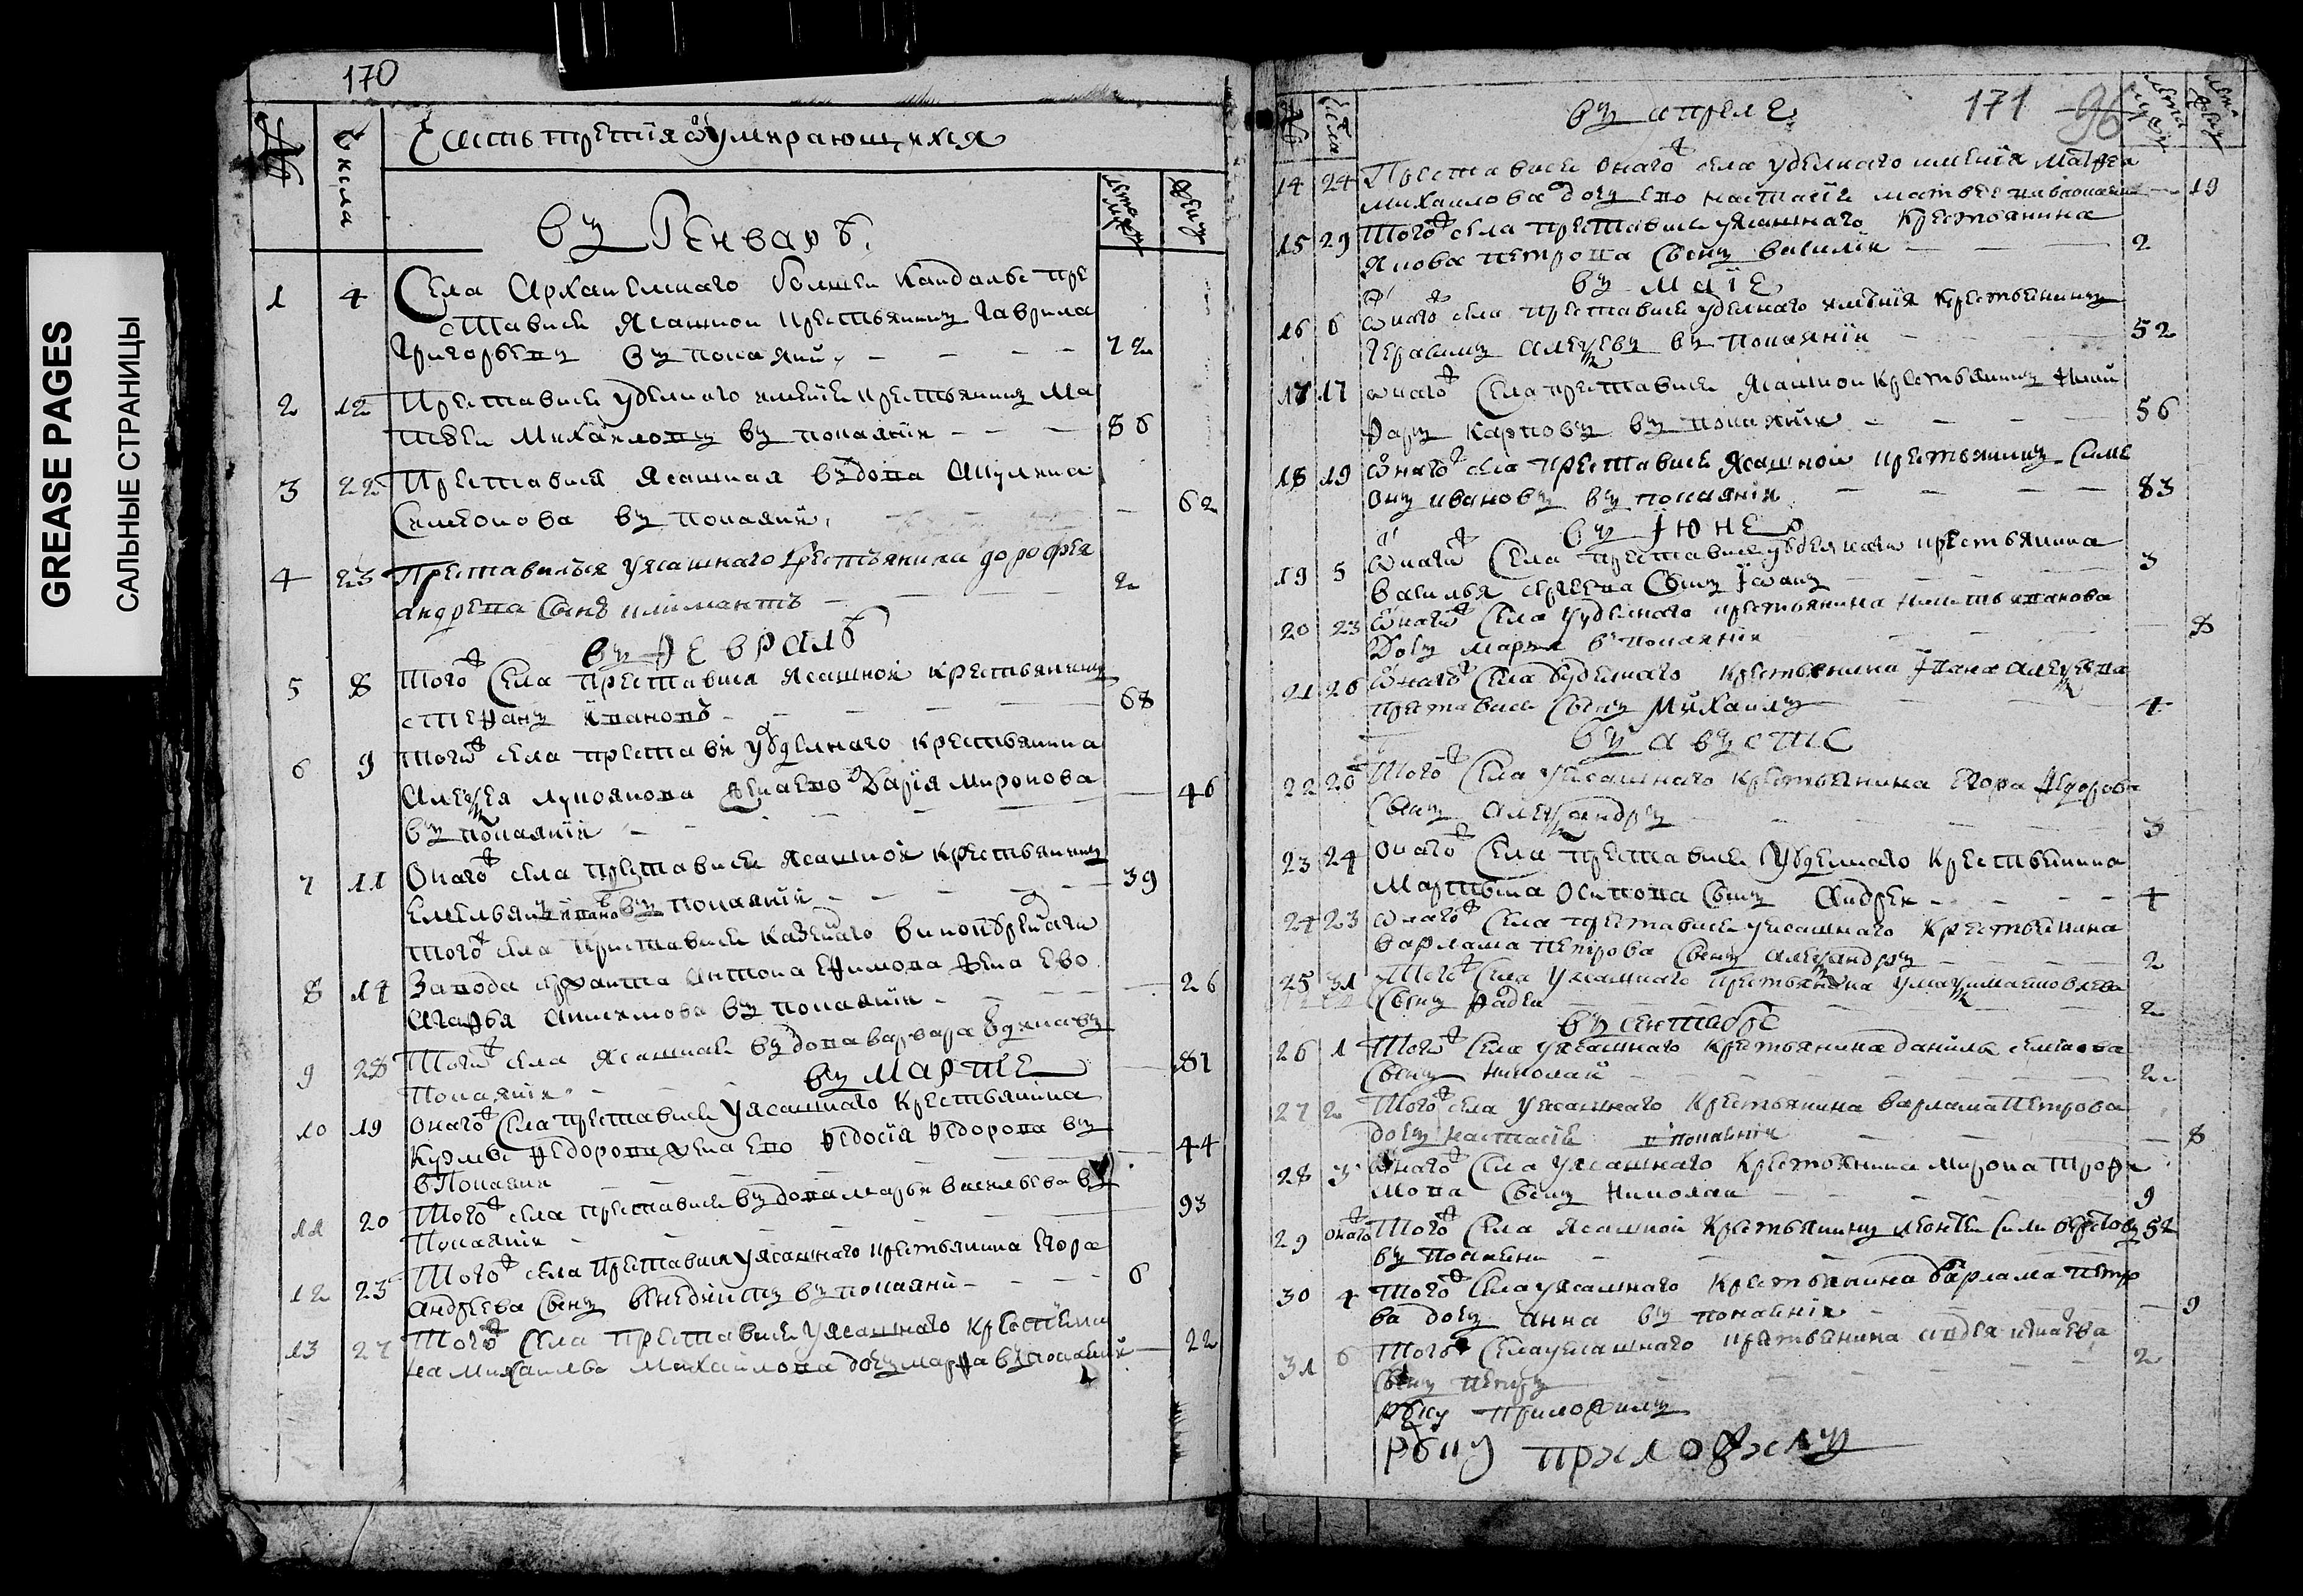 GREASE PAGES
САЛЬНЫЕ СТРАНИЦЫ
170
№ Числа Часть третїя ѡ умирающихся
лѣта мужеск женск
въ Генварѣ
1 4 Села Архангелскаго болшеи Кандалы пре
ставися Ясашнои крестьянинъ Гаврила
Григорьевъ въ покаянїи 72
2 12 Преставися уделного имѣния крестьянинъ Ма
твеи Михаиловъ въ покаянїи 86
3 22 Преставися Ясашная въдова Акулина
Симеонова въ покаянїи 62
4 23 Преставился уясашнаго крестьянина дорофея
андреева сынъ климантъ 2
въ февралѣ
5 8 Того села преставися Ясашнои крестьянинъ
стефанъ ивановъ 68
6 9 Того села престави удѣлнаго крестьянина
Алеѯея лукоянова жена ево Дарїя Миронова 46
въ покаянїи
7 11 Онаго села преставися Ясашнои крестьянинъ
Емельянъ ивановъ въ покаянїи 39
Того села преставися казеннаго винокуреннаго
8 14 Завода сержанта Антона Ефимова жена ево 26
Агафья въ покаянїи
9 28 Того села Ясашная въдова варвара въ 81
Покаянїи въ марте
10 19 Онаго села преставися уясашнаго крестьянина
Кузмы федорова жена ево Федосїя Федорова въ 44
в Покаянии
11 20 Того села преставися въдова марья васильева въ 93
Покаянїи
12 25 Того села Преставися уясашнаго крестьянина Егора
Андреева сынъ Венедиктъ въ покаянїи 6
13 27 Того села Преставися уясашнаго крестьяни
на михаилы Михаилова дочь марфа въ покаянїи 22
въ апреле 171 96
№ Числа лѣта мужеск лѣта женск
14 24 Преставися онаго села уделнаго имѣнїя матфея
михаилова дочь ево настасїя 19
15 29 Того села преставися уясашнаго крестоянина
Якова петрова сынъ василїи 2
въ маїе
16 6 ѡнаго села преставися уделнаго имѣнїя крестьянинъ
Герасимъ алеѯеевъ въ покаянїи 52
17 17 ѡнаго села преставися Ясашнои крестьянинъ Ники
фаръ карповъ въ покаянїи 56
18 19 ѡнаго села преставися Ясашнои крестьянинъ симе
онъ ивановъ въ покаянїи 83
въ Iюне
19 5 ѡнаго села преставися уделнаго крестьянина
василья сергеева сынъ Їѡанъ 3
20 23 ѡнаго села уделнаго крестьянина
Дочь Марья в покаянїи 8
21 26 ѡнаго села уделнаго крестьянина Iвана алеѯеева
преставися сынъ Михаилъ 4
въ авусте
22 20 Того села уясашнаго крестьянина Егора федорова
сынъ алеѯандръ 3
23 24 Онаго села преставися уделнаго крестьянина
Мартына осипова сынъ Андреи 4
24 23 ѡнаго села преставися уясашнаго крестьянина
варлама петрова сынъ алеѯандръ 2
25 31 Того села уясашнаго крестьянина
сынъ фадеи 2
въ сентабре
26 1 Того села уясашнаго крестьянина данилы
сынъ николаи 2
27 2 Того села уясашнаго крестьянина варлама петрова
дочь настасїя в покаянїи 8
28 3 ѡнаго села уясашнаго крестьянина мирона трофи
мова сынъ николаи 9
29 онаго Того села Ясашнои крестьянинъ леонтеи 52
въ покаянии
30 4 Того села уясашнаго крестьянина варлама петр
ва дочь анна въ покаянїи 9
31 6 Того села уясашнаго крестьянина
сынъ петръ 2
рѣку приложилъ
рѣку приложилъ